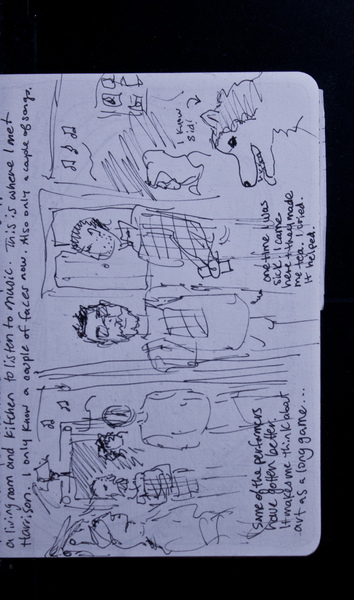 a living room and kitchen to listen to music. This is where I met
Harrison. I only know a couple of faces now. Also only a couple of songs.
I know
sid!
one time I was
sick. I came
here & they made
me tea. I cried.
it helped.
some of the performers
have gotten better.
It makes me think about
art as a long game...